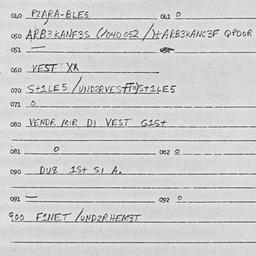 040 PZARA-BLES 041 0
050 ARB3KANF3S (1040052 /)+ARB3KANC3F QPOOR
051 —
060 VEST XX
070 S+1LES /UNDZRVEST=)S+1LES
071 0
080 VENDR MIR DI VEST G1S+
081 0 082 0
090 DU8 1S+ SI A.
091 — 092 0
900 F1NET /UNDZRHEM3T